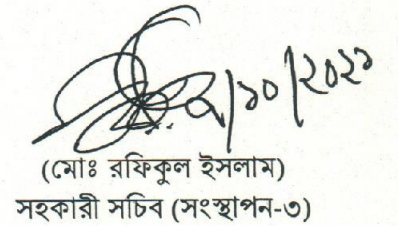 /১০/২০২১
(মোঃ রফিকুল ইসলাম)
সহকারী সচিব (সংস্থাপন-৩)